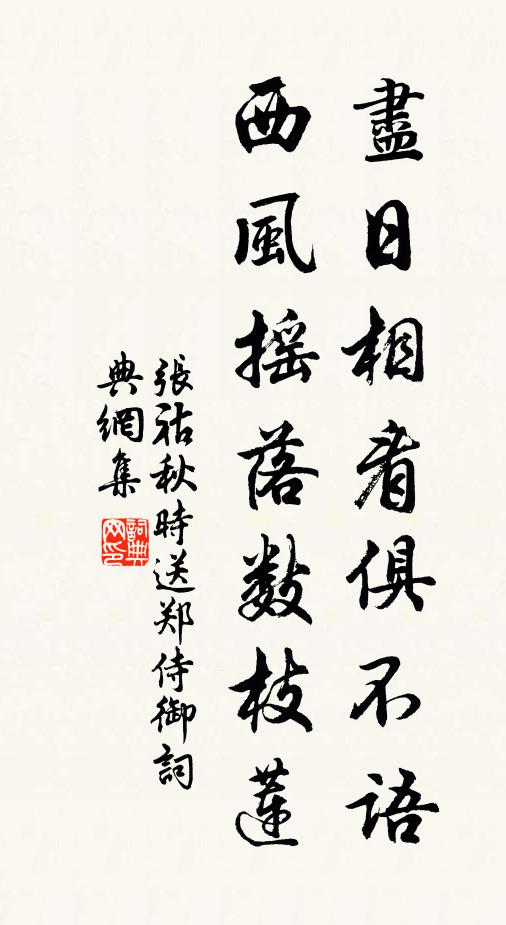 盡日相看俱不語
西風摇落數枝蓮
張祜秋時送郑侍御詞
典網集
詞典
网印